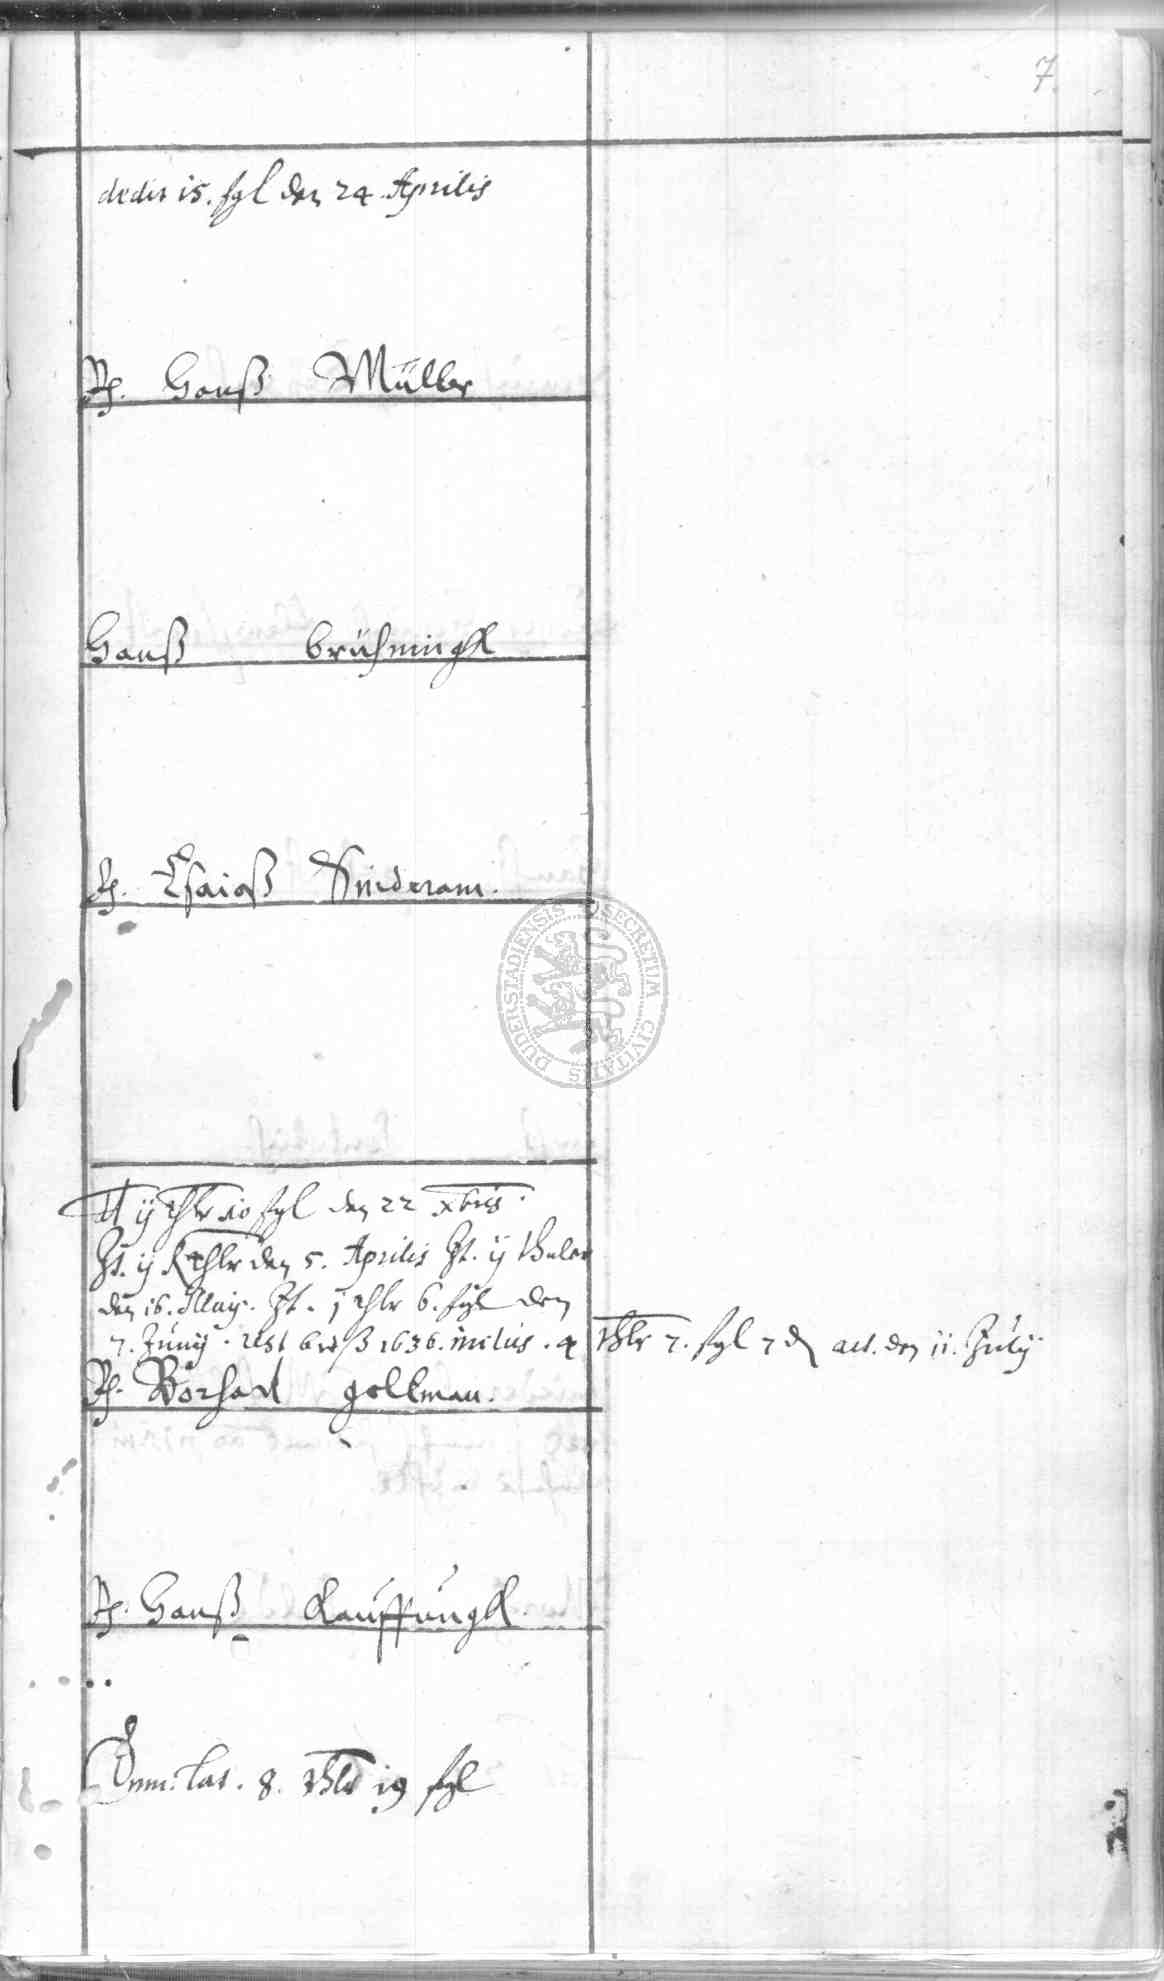 7
dedit 15. fgl den 24 Aprilis
Hanß Müller
Hanß brüheningk
Esaiaß Sinderam.
DUDERSTADIENSIS SECRETUM CIVITATIS
ij thlr 10 fgl den 22 xbris.
It. ij Rthlr den 5. Aprilis It. ij thaler
den 16. Maij. It. j thlr 6. fgl den
7. Junij. rest biß 1636. inclus. 4 thlr 7. fgl 7 d act. den 11. July
gollman.
Hanß Kauffungk.
Sum. lat. 8. thlr 19 fgl